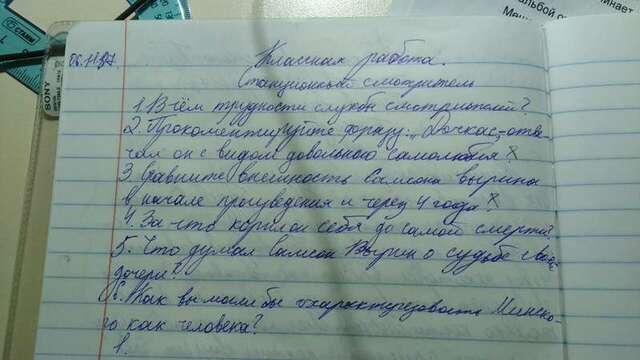 06.11.17.
Классная работа.
Станционный смотритель
1. В чём трудности службы смотрителей?
2. Прокоментируйте фразу: „Дочка-с, отве-
чал он с видом довольного самолюбия."
3. Сравните внешность Самсона Вырина
в начале произведения и через 4 года?
4. За что корил он себя до самой смерти
5. Что думал Самсон Вырин о судьбе своей
дочери?
6. Как вы могли бы охарактеризовать Минско-
го как человека?
1.
SONY
инает
льбой о
Ме